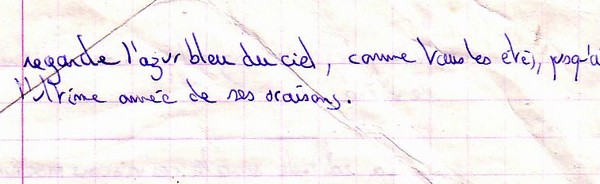 regarde l'azur bleu du ciel, comme tous les étés, jusqu'à
l'ultime année de ses oraisons.